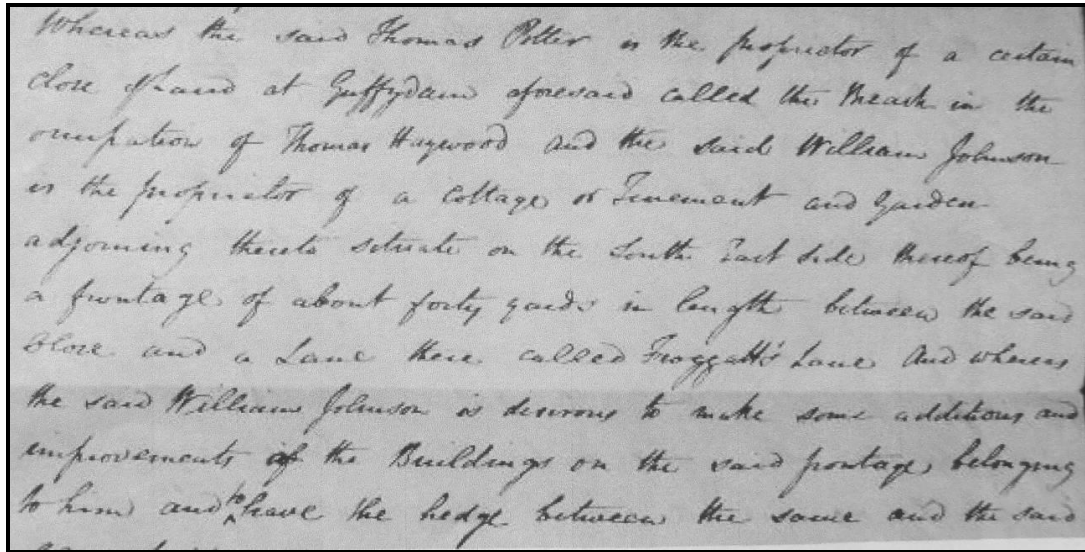 Whereas the said Thomas Potter is the proprietor of a certain
close of Land at Guffydam aforesaid called the Breach in the
occupation of Thomas Haywood and the said William Johnson
is the proprietor of a Cottage or Tenement and Garden
adjoining thereto situate on the South East side thereof being
a frontage of about forty yards in length between the said
Close and a Lane there called Froggatt's Lane And whereas
the said William Johnson is desirous to make some additions and
improvements of the Buildings on the said frontage belonging
to him and to have the hedge between the same and the said